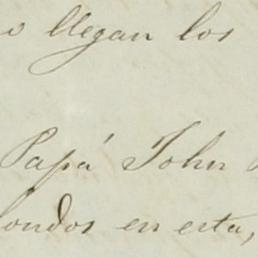 o llegan los
Papá John
fondos en esta,